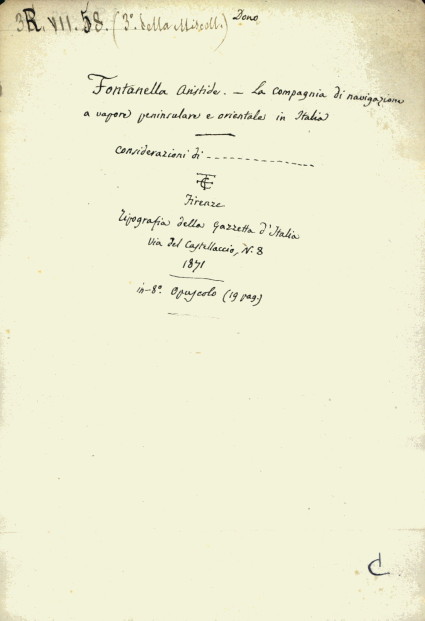 3R. VII. 58. (3º. della Miscell.) Dono
Fontanella Aristide. — La compagnia di navigazione
a vapore peninsulare e orientale in Italia
Considerazioni di
Firenze
Tipografia della Gazzetta d'Italia
Via del Castellaccio, N. 8
1871
in-8º. Opuscolo (19 pag.)
C